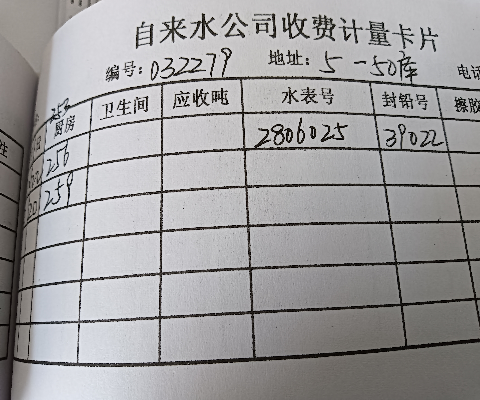 自来水公司收费计量卡片
编号: 032279 地址: 5-50库 电话
253
厨房 卫生间 应收吨 水表号 封铅号 擦胶
256 2806025 39022
259